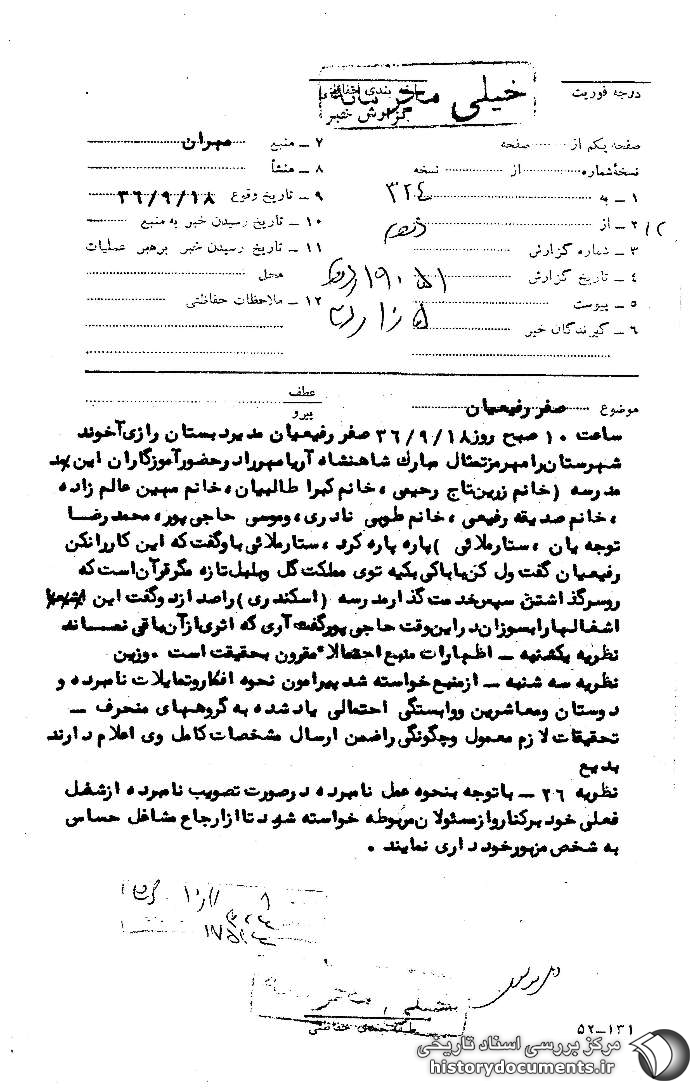 خیلی محرمانه
طبقه بندی حفاظتی
گزارش خبر
درجه فوریت
صفحه یکم از صفحه
نسخه شماره از نسخه
۱ ـ به ۳۲۴
۲ ـ از
۳ ـ شماره گزارش
۴ ـ تاریخ گزارش
۵ ـ پیوست
۶ ـ گیرندگان خبر
۷ ـ منبع مهران
۸ ـ منشأ
۹ ـ تاریخ وقوع ۳۶/۹/۱۸
۱۰ ـ تاریخ رسیدن خبر به منبع
۱۱ ـ تاریخ رسیدن خبر برهبر عملیات
محل
۱۲ ـ ملاحظات حفاظتی
موضوع صفر رفیعیان
عطف
پیرو
ساعت ۱۰ صبح روز ۳۶/۹/۱۸ صفر رفیعیان مدیر دبستان رازی آخوند
شهرستان رامهرمز تمثال مبارك شاهنشاه آریامهر را در حضور آموزگاران این
مدرسه (خانم زرین تاج رحیمی ، خانم کبرا طالبیان ، خانم مهین عالم زاده
، خانم صدیقه رفیعی ، خانم طوبی نادری ، وموسی حاجی پور ، محمد رضا
توجه یان ، ستار ملائی ) پاره پاره کرد ، ستار ملائی باو گفت که این کار را نکن
رفیعیان گفت ول کن بابا کی بکیه توی مملکت گل وبلبل تازه مگر قرآن است که
روسر گذاشتن سپس خدمت گذار مدرسه (اسکندری) را صدا زد وگفت این
اشغالها را بسوزان در این وقت حاجی پور گفت آری که اثری از آن باقی نماند
نظریه یکشنبه ـ اظهارات منبع احتمالا" مقرون بحقیقت است . وزین
نظریه سه شنبه ـ از منبع خواسته شد پیرامون نحوه افکار وتمایلات نامبرده و
دوستان ومعاشرین ووابستگی احتمالی یاد شده به گروههای منحرف ـ
تحقیقات لازم معمول وچگونگی را ضمن ارسال مشخصات کامل وی اعلام دارند
بدیع
نظریه ۲۶ ـ با توجه بنحوه عمل نامبرده در صورت تصویب نامبرده از شغل
فعلی خود برکنار و از مسئولان مربوطه خواسته شود تا از ارجاع مشاغل حساس
به شخص مزبور خودداری نمایند .
طبقه بندی حفاظتی
۵۲-۱۳۱
مرکز بررسی اسناد تاریخی
historydocuments.ir